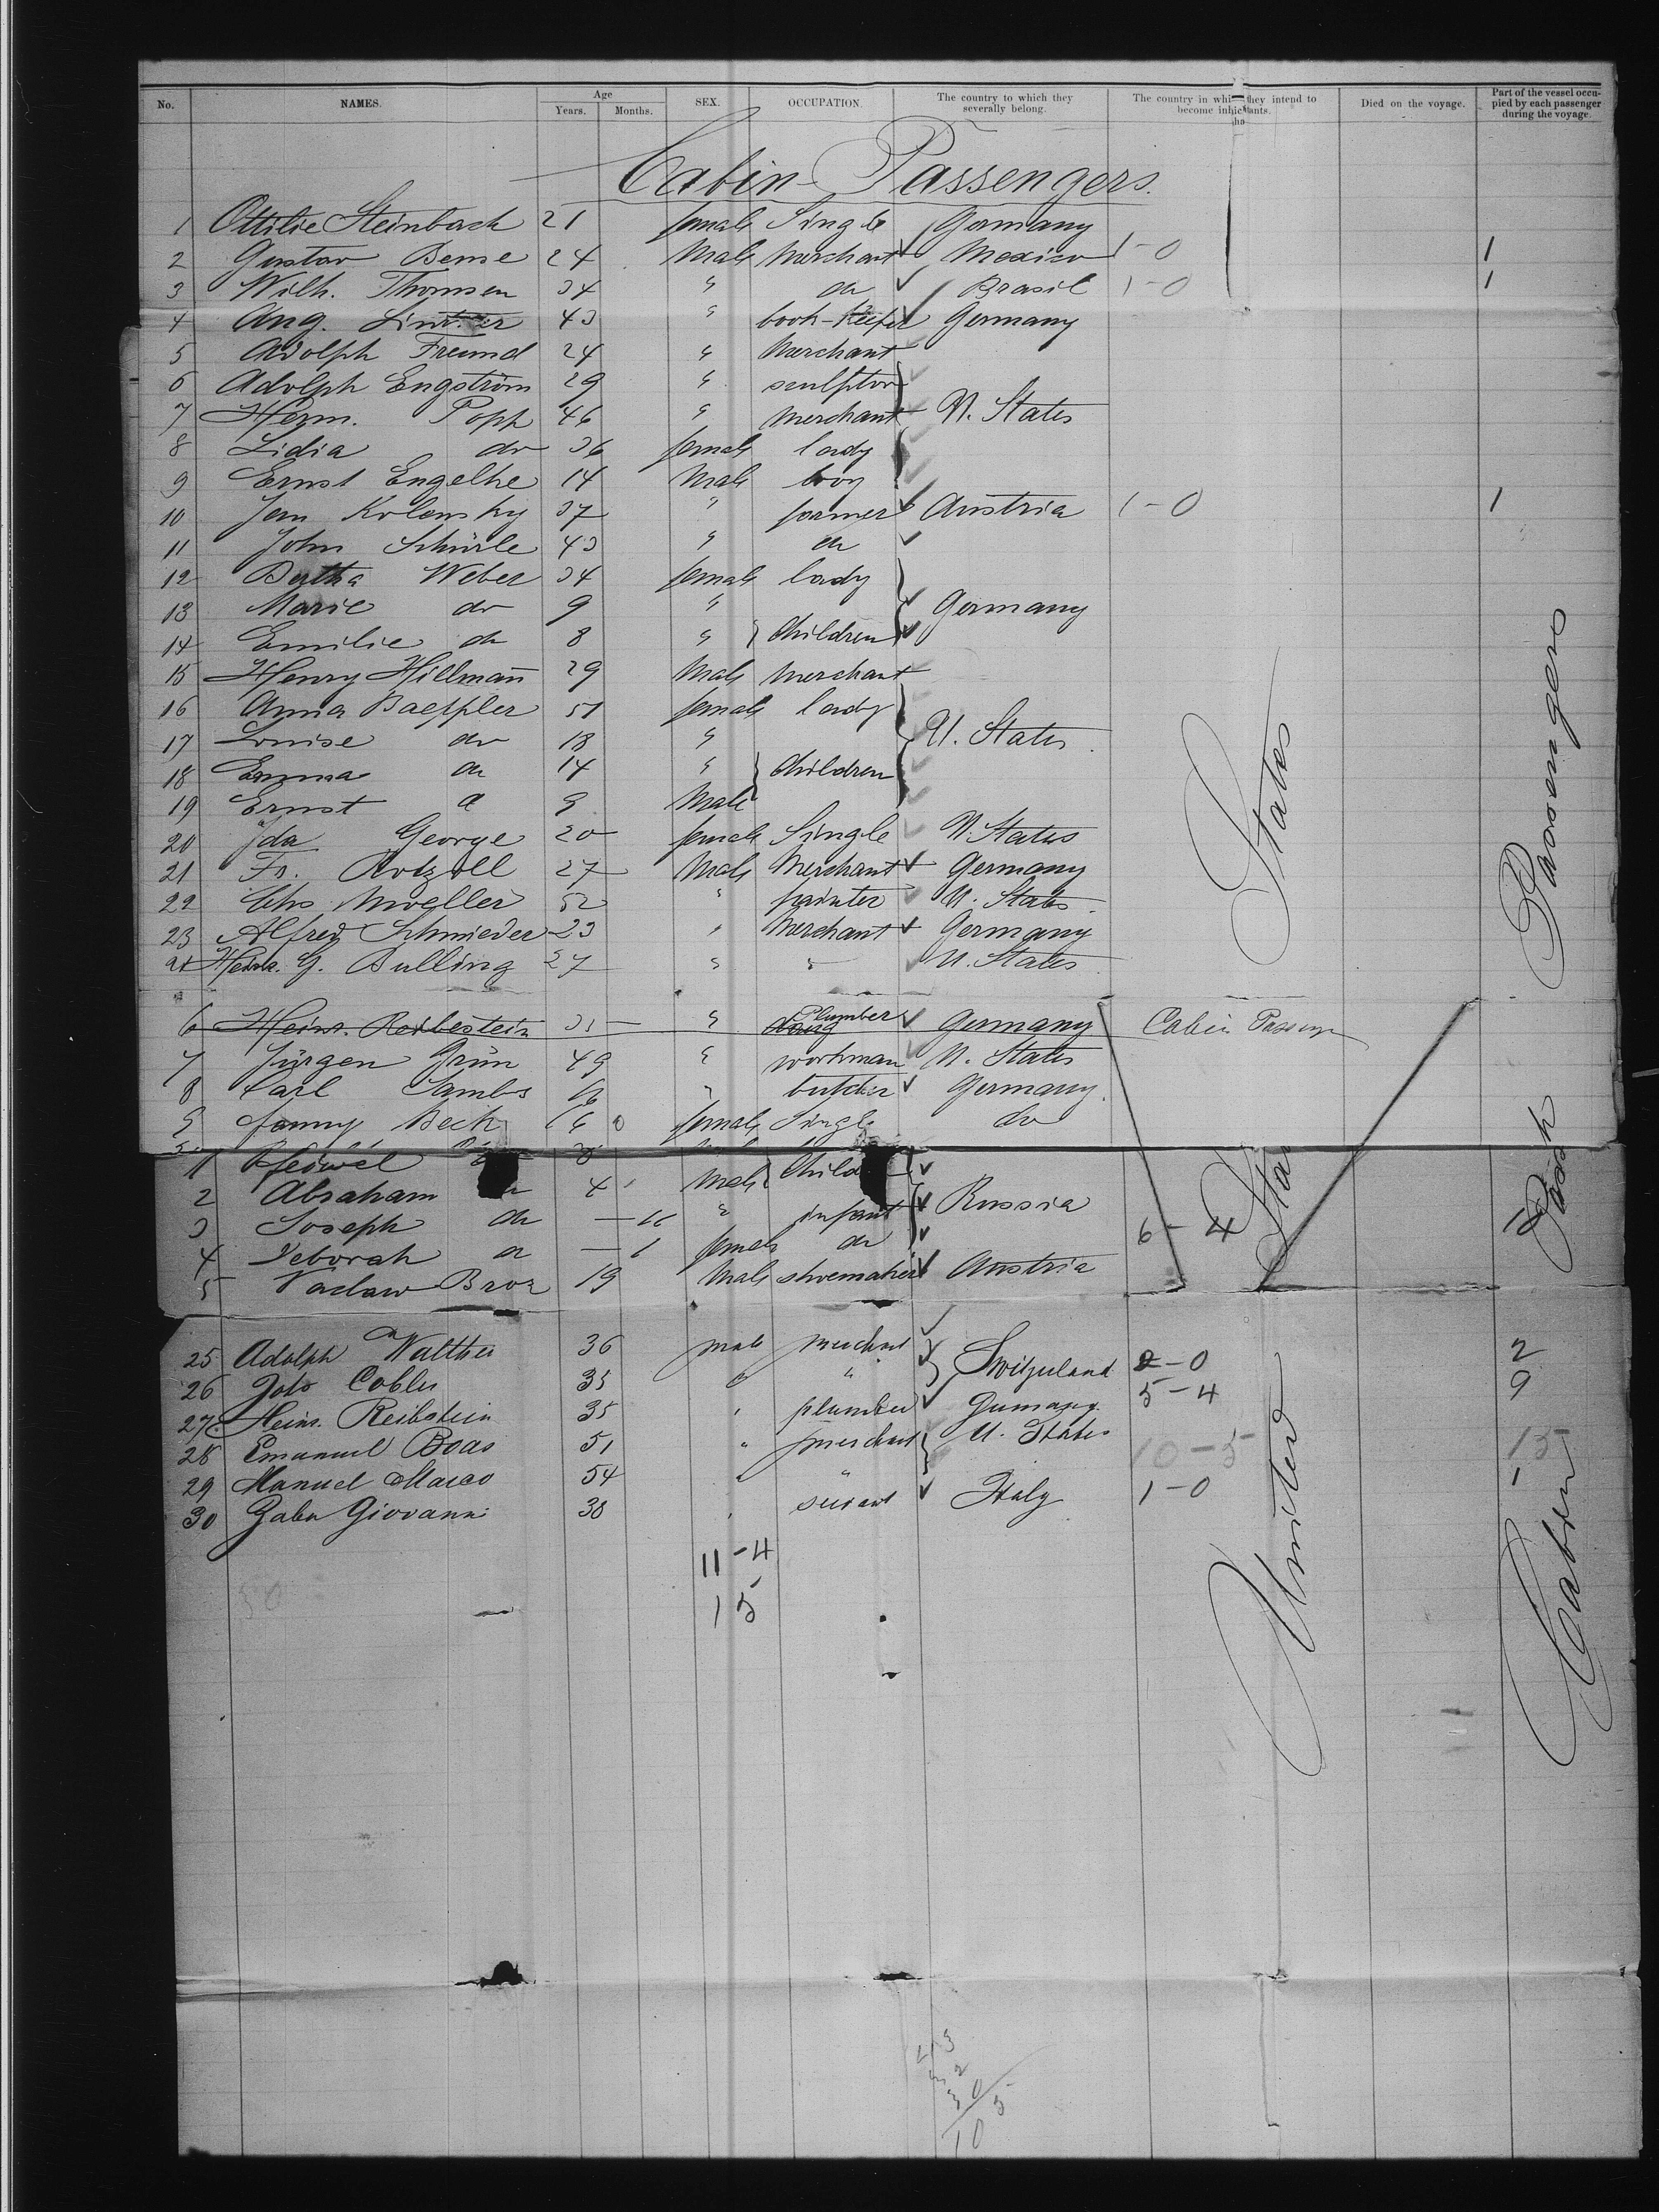 No. NAMES. Age Years. Months. SEX. OCCUPATION. The country to which they severally belong. The country in which they intend to become inhabitants. Died on the voyage. Part of the vessel occupied by each passenger during the voyage.
Cabin-Passengers.
1 Ottilie Steinbach 21 female Single Germany
2 Gustav Bense 24 Male Merchant Mexico 1-0 1
3 Wilh. Thomsen 34 " do Brasil 1-0 1
4 Aug. 43 " book-keeper Germany
5 Adolph Freund 24 " Merchant
6 Adolph Engström 29 " sculptor
7 Herm. Popp 46 " Merchant U. States
8 Lidia do 36 female lady
9 Ernst Engelke 14 Male boy
10 Jan Kolensky 37 " farmer Austria 1-0 1
11 John Schürle 43 " do
12 Bertha Weber 34 female lady
13 Marie do 9 " Germany
14 Emilie do 8 " Children
15 Henry Hillmann 29 Male Merchant
16 Anna Baeppler 51 female lady
17 Louise do 18 " U. States.
18 Emma do 14 " Children
19 Ernst do 9 Male
20 Ida George 20 female Single U. States
21 Fr. Artzoll 27 Male Merchant Germany
22 Chs Moeller 52 " painter U. States.
23 Alfred Schmieder 23 " Merchant Germany
24 Heinr. G. Bulling 27 " " U. States.
6 Heinr. Reibestein 35 " Plumber Germany Cabin Passenger
7 Jürgen Grün 49 " workman U. States
8 Carl Sambs 16 " butcher Germany.
9 Fanny Beck 16 female Single do
1 8 Child
2 Abraham 4 Male
3 Joseph do - 11 " infant Russia
4 Deborah do - 1 female do 6-4 10
5 Vaclaw Broz 19 Male shoemaker Austria
25 Adolph Walther 36 male merchant
26 Goto Cobler 35 " " Switzerland 2-0 2
27 Hein. Reibstein 35 " plumber Germany. 5-4 9
28 Emanuel Boas 51 " merchant U. States 10-5 15
29 Manuel Marco 54 " "
30 Giovanni 38 " servant Italy 1-0 1
11-4
15
50
United States
Cabin Passengers